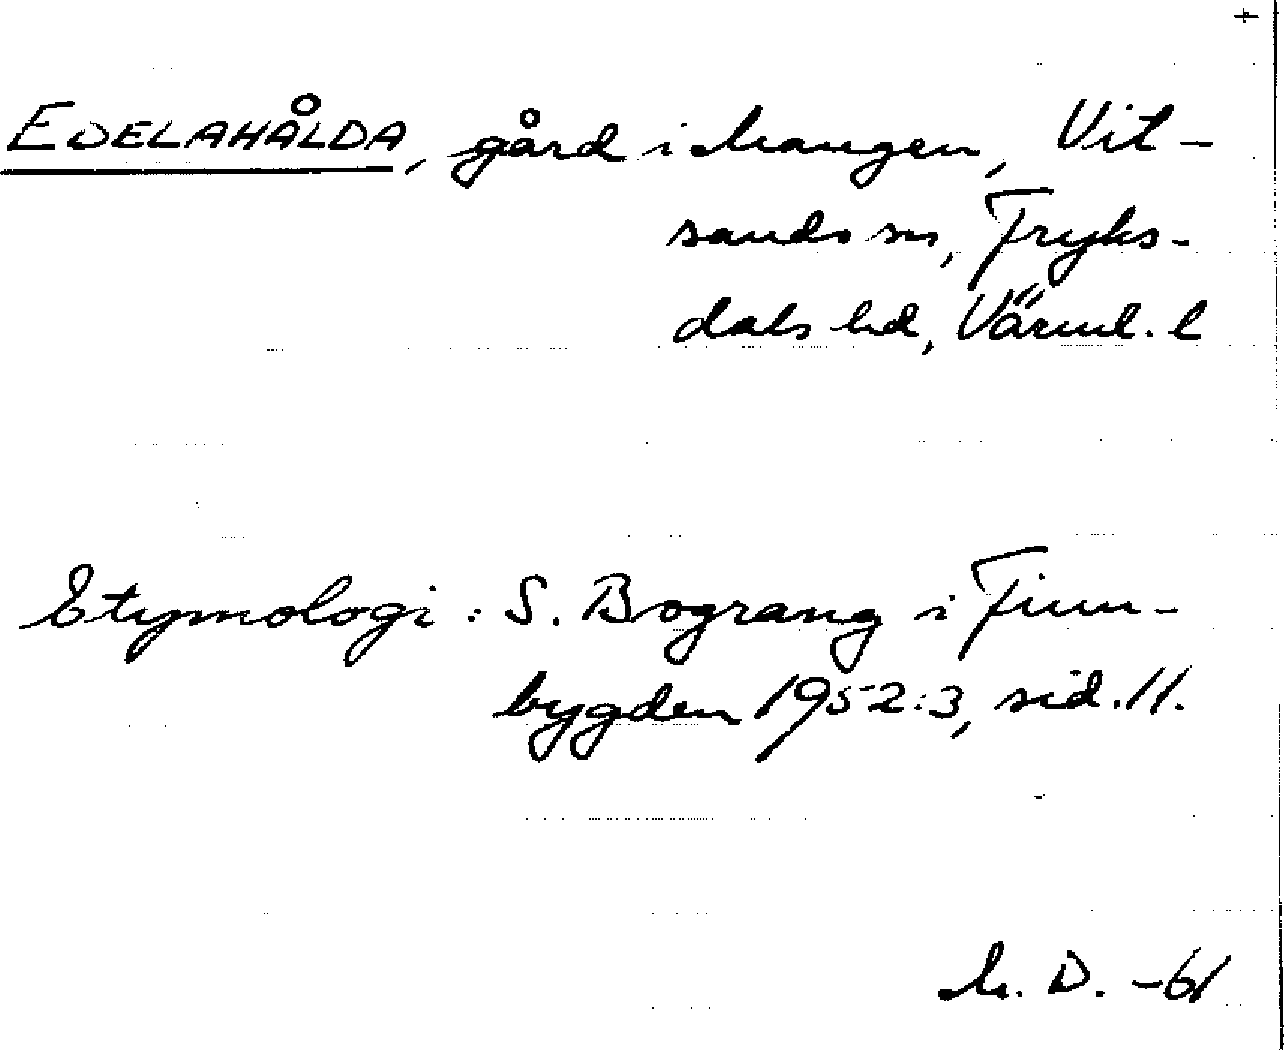 +
EDELAHÅLDA, gård i Mangen, Vit-
sands sn, Fryks-
dals hd, Värml. l
Etymologi: S. Bograng i Finn-
bygden 1952:3, sid. 11.
M. D. -61